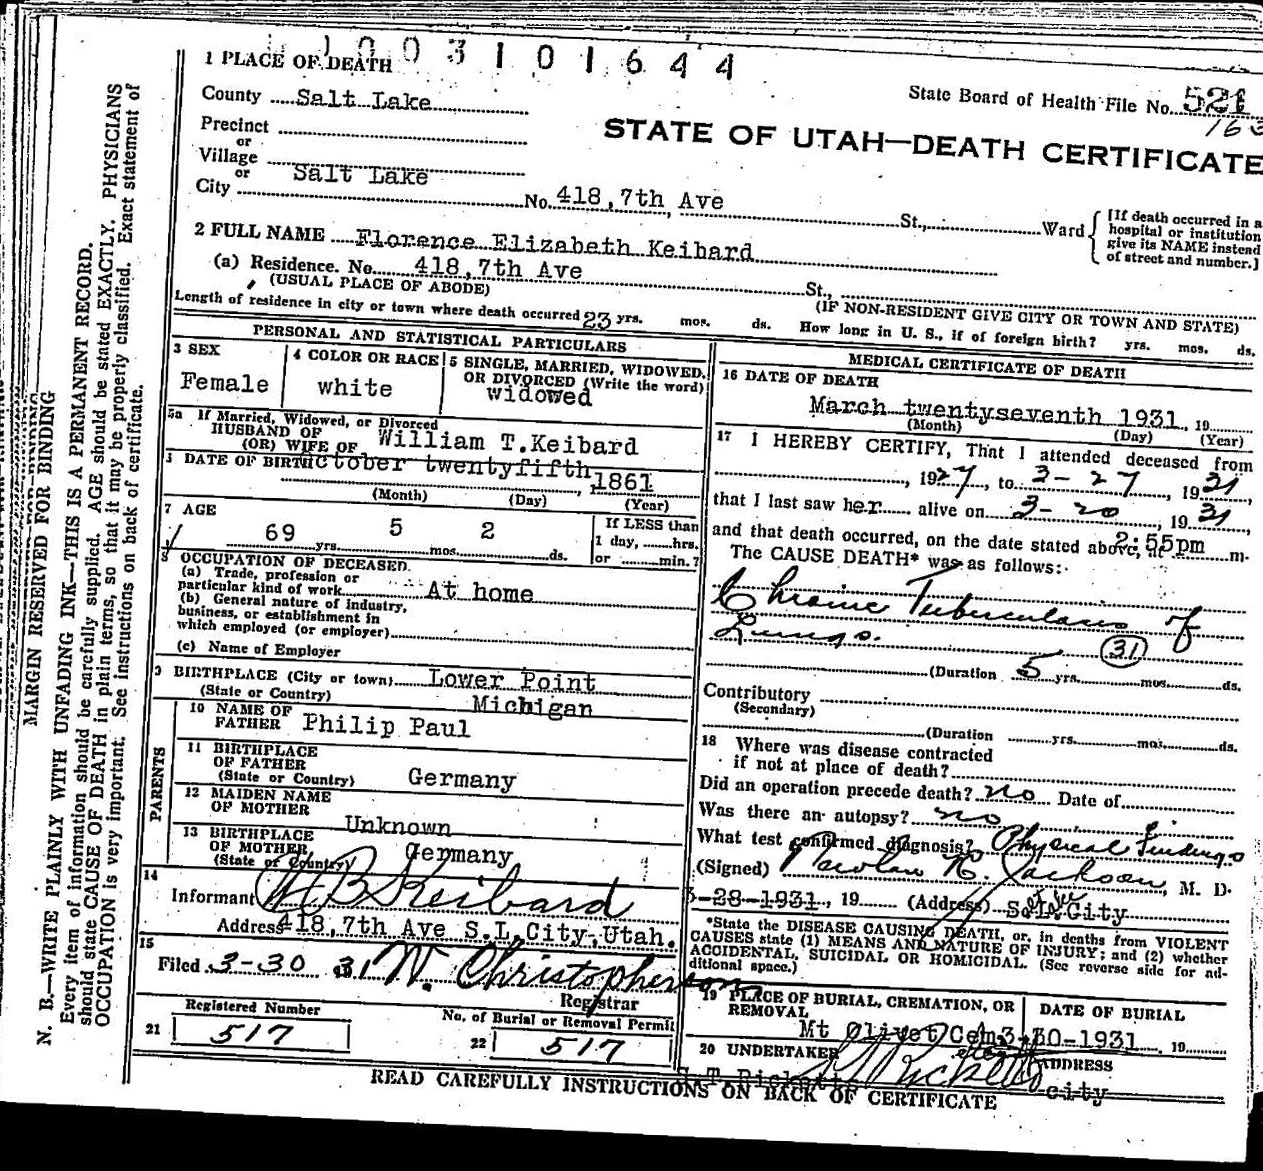 1003101644
1 PLACE OF DEATH
State Board of Health File No. 521
163
County Salt Lake
STATE OF UTAH—DEATH CERTIFICATE
Precinct
or
Village
or
City Salt Lake No. 418, 7th Ave St., Ward
[If death occurred in a
hospital or institution
give its NAME instead
of street and number.]
2 FULL NAME Florence Elizabeth Keibard
(a) Residence. No. 418, 7th Ave St.,
(USUAL PLACE OF ABODE) (IF NON-RESIDENT GIVE CITY OR TOWN AND STATE)
Length of residence in city or town where death occurred 23 yrs. mos. ds. How long in U. S., if of foreign birth? yrs. mos. ds.
PERSONAL AND STATISTICAL PARTICULARS
3 SEX
Female
4 COLOR OR RACE
white
5 SINGLE, MARRIED, WIDOWED,
OR DIVORCED (Write the word)
widowed
5a If Married, Widowed, or Divorced
HUSBAND OF
(OR) WIFE OF William T. Keibard
DATE OF BIRTH October twentyfifth, 1861
(Month) (Day) (Year)
7 AGE
69 yrs. 5 mos. 2 ds.
If LESS than
1 day, hrs.
or min.?
8 OCCUPATION OF DECEASED
(a) Trade, profession or
particular kind of work At home
(b) General nature of industry,
business, or establishment in
which employed (or employer)
(c) Name of Employer
9 BIRTHPLACE (City or town) Lower Point
(State or Country) Michigan
PARENTS
10 NAME OF
FATHER Philip Paul
11 BIRTHPLACE
OF FATHER
(State or Country) Germany
12 MAIDEN NAME
OF MOTHER
Unknown
13 BIRTHPLACE
OF MOTHER
(State or Country) Germany
14
Informant W B Keibard
Address 418, 7th Ave S.L.City, Utah.
15
Filed 3-30 31 W. Christopherson
Registrar
Registered Number
21 517
No. of Burial or Removal Permit
22 517
MEDICAL CERTIFICATE OF DEATH
16 DATE OF DEATH
March twentyseventh 1931, 19
(Month) (Day) (Year)
17 I HEREBY CERTIFY, That I attended deceased from
, 1927, to 3-27, 1931,
that I last saw her alive on 3-20, 1931,
and that death occurred, on the date stated above, at 2:55pm m.
The CAUSE DEATH* was as follows:
Chronic Tuberculosis of
Lungs. (31)
(Duration 5 yrs. mos. ds.
Contributory
(Secondary)
(Duration yrs. mos. ds.
18 Where was disease contracted
if not at place of death?
Did an operation precede death? no Date of
Was there an autopsy? no
What test confirmed diagnosis? Physical Findings
(Signed) Jackson, M. D.
3-28-1931, 19 (Address) S.L.City
*State the DISEASE CAUSING DEATH, or, in deaths from VIOLENT
CAUSES state (1) MEANS AND NATURE OF INJURY; and (2) whether
ACCIDENTAL, SUICIDAL OR HOMICIDAL. (See reverse side for ad-
ditional space.)
19 PLACE OF BURIAL, CREMATION, OR
REMOVAL
Mt Olivet Cem
DATE OF BURIAL
3-30-1931, 19
20 UNDERTAKER
ADDRESS
city
READ CAREFULLY INSTRUCTIONS ON BACK OF CERTIFICATE
MARGIN RESERVED FOR BINDING
N. B.—WRITE PLAINLY WITH UNFADING INK—THIS IS A PERMANENT RECORD.
Every item of information should be carefully supplied. AGE should be stated EXACTLY. PHYSICIANS
should state CAUSE OF DEATH in plain terms, so that it may be properly classified. Exact statement of
OCCUPATION is very important. See instructions on back of certificate.